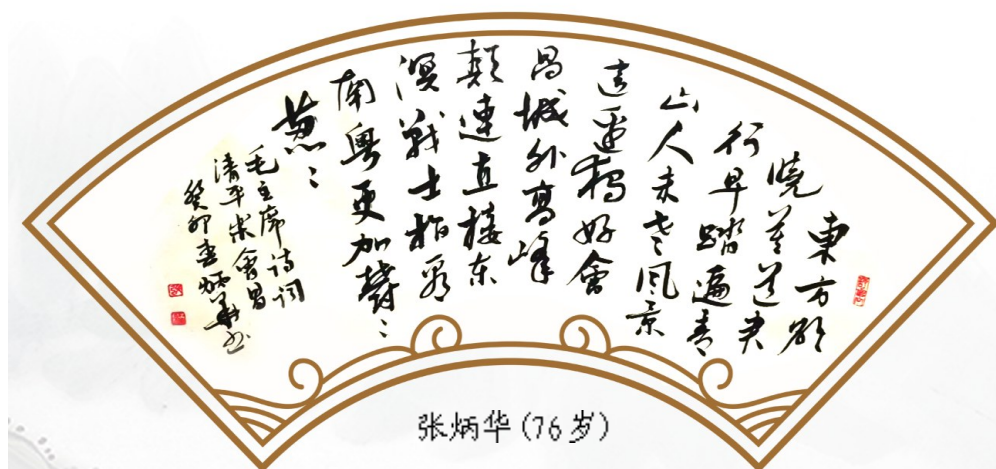 東方欲
曉莫道君
行早踏遍青
山人未老風景
這邊獨好會
昌城外高峰
顛連直接东
溟戰士指看
南粤更加鬱〻
葱〻
毛主席詩詞
清平樂會昌
癸卯春炳華书
张炳华(76岁)